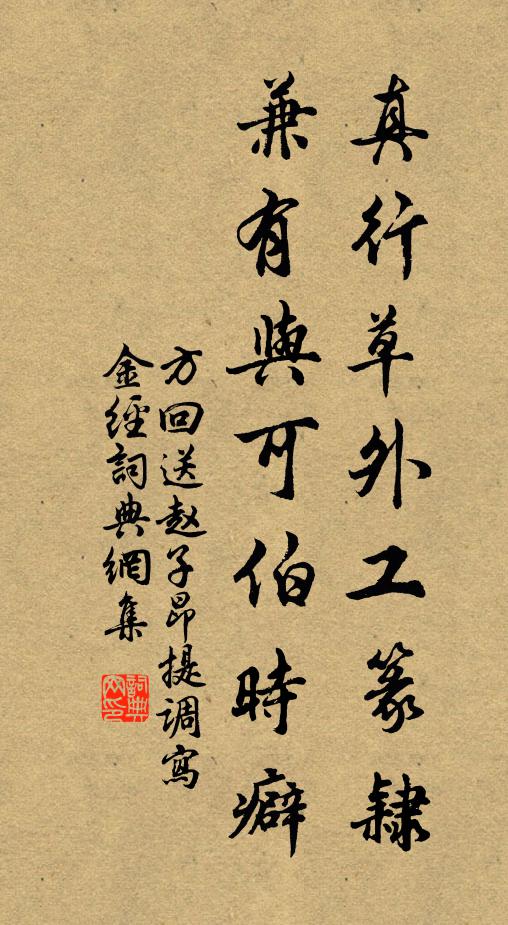 真行草外工篆隸
兼有與可伯時癖
方回送赵子昂提調寫
金經詞典網集
詞典